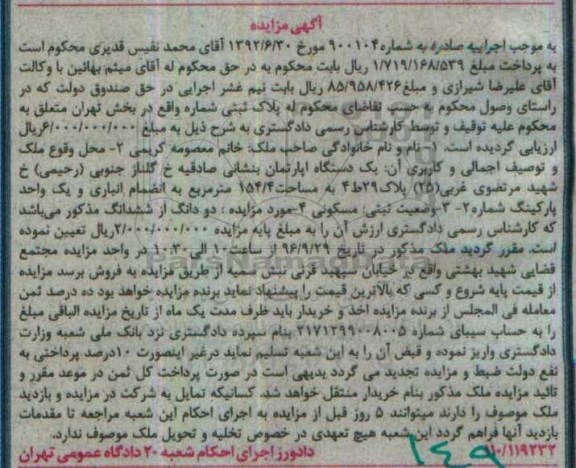 آگهی مزایده
به موجب اجراییه صادره به شماره ۹۰۰۱۰۴ مورخ ۱۳۹۲/۶/۳۰ آقای محمد نفیس قدیری محکوم است
به پرداخت مبلغ ۱/۷۱۹/۱۶۸/۵۳۹ ریال بابت محکوم به در حق محکوم له آقای میثم بهائین با وکالت
آقای علیرضا شیرازی و مبلغ ۸۵/۹۵۸/۴۲۶ ریال بابت نیم عشر اجرایی در حق صندوق دولت که در
راستای وصول محکوم به حسب تقاضای محکوم له پلاک ثبتی شماره واقع در بخش تهران متعلق به
محکوم علیه توقیف و توسط کارشناس رسمی دادگستری به شرح ذیل به مبلغ ۶/۰۰۰/۰۰۰/۰۰۰ ریال
ارزیابی گردیده است. ۱- نام و نام خانوادگی صاحب ملک: خانم معصومه کریمی ۲- محل وقوع ملک
و توصیف اجمالی و کاربری آن: یک دستگاه آپارتمان بنشانی صادقیه خ گلناز جنوبی (رحیمی) خ
شهید مرتضوی غربی (۲۵) پلاک ۲۹ ط ۴ به مساحت ۱۵۴/۴ مترمربع به انضمام انباری و یک واحد
پارکینگ شماره ۲- ۳- وضعیت ثبتی: مسکونی ۴- مورد مزایده : دو دانگ از ششدانگ مذکور می‌باشد
که کارشناس رسمی دادگستری ارزش آن را به مبلغ پایه مزایده ۲/۰۰۰/۰۰۰/۰۰۰ ریال تعیین نموده
است. مقرر گردید ملک مذکور در تاریخ ۹۶/۹/۲۹ از ساعت ۱۰ الی ۱۰:۳۰ در واحد مزایده مجتمع
قضایی شهید بهشتی واقع در خیابان سپهبد قرنی نبش سمیه از طریق مزایده به فروش برسد مزایده
از قیمت پایه شروع و کسی که بالاترین قیمت را پیشنهاد نماید برنده مزایده خواهد بود ده درصد ثمن
معامله فی المجلس از برنده مزایده اخذ و خریدار باید ظرف مدت یک ماه از تاریخ مزایده الباقی مبلغ
را به حساب سیبای شماره ۲۱۷۱۲۹۹۰۰۸۰۰۵ بنام سپرده دادگستری نزد بانک ملی شعبه وزارت
دادگستری واریز نموده و قبض آن را به این شعبه تسلیم نماید درغیر اینصورت ۱۰درصد پرداختی به
نفع دولت ضبط و مزایده تجدید می گردد بدیهی است در صورت پرداخت کل ثمن در موعد مقرر و
تائید مزایده ملک مذکور بنام خریدار منتقل خواهد شد. کسانیکه تمایل به شرکت در مزایده و بازدید
ملک موصوف را دارند میتوانند ۵ روز قبل از مزایده به اجرای احکام این شعبه مراجعه تا مقدمات
بازدید آنها فراهم گردد این شعبه هیچ تعهدی در خصوص تخلیه و تحویل ملک موصوف ندارد.
۱۱۰/۱۱۹۲۳۲ دادورز اجرای احکام شعبه ۲۰ دادگاه عمومی تهران